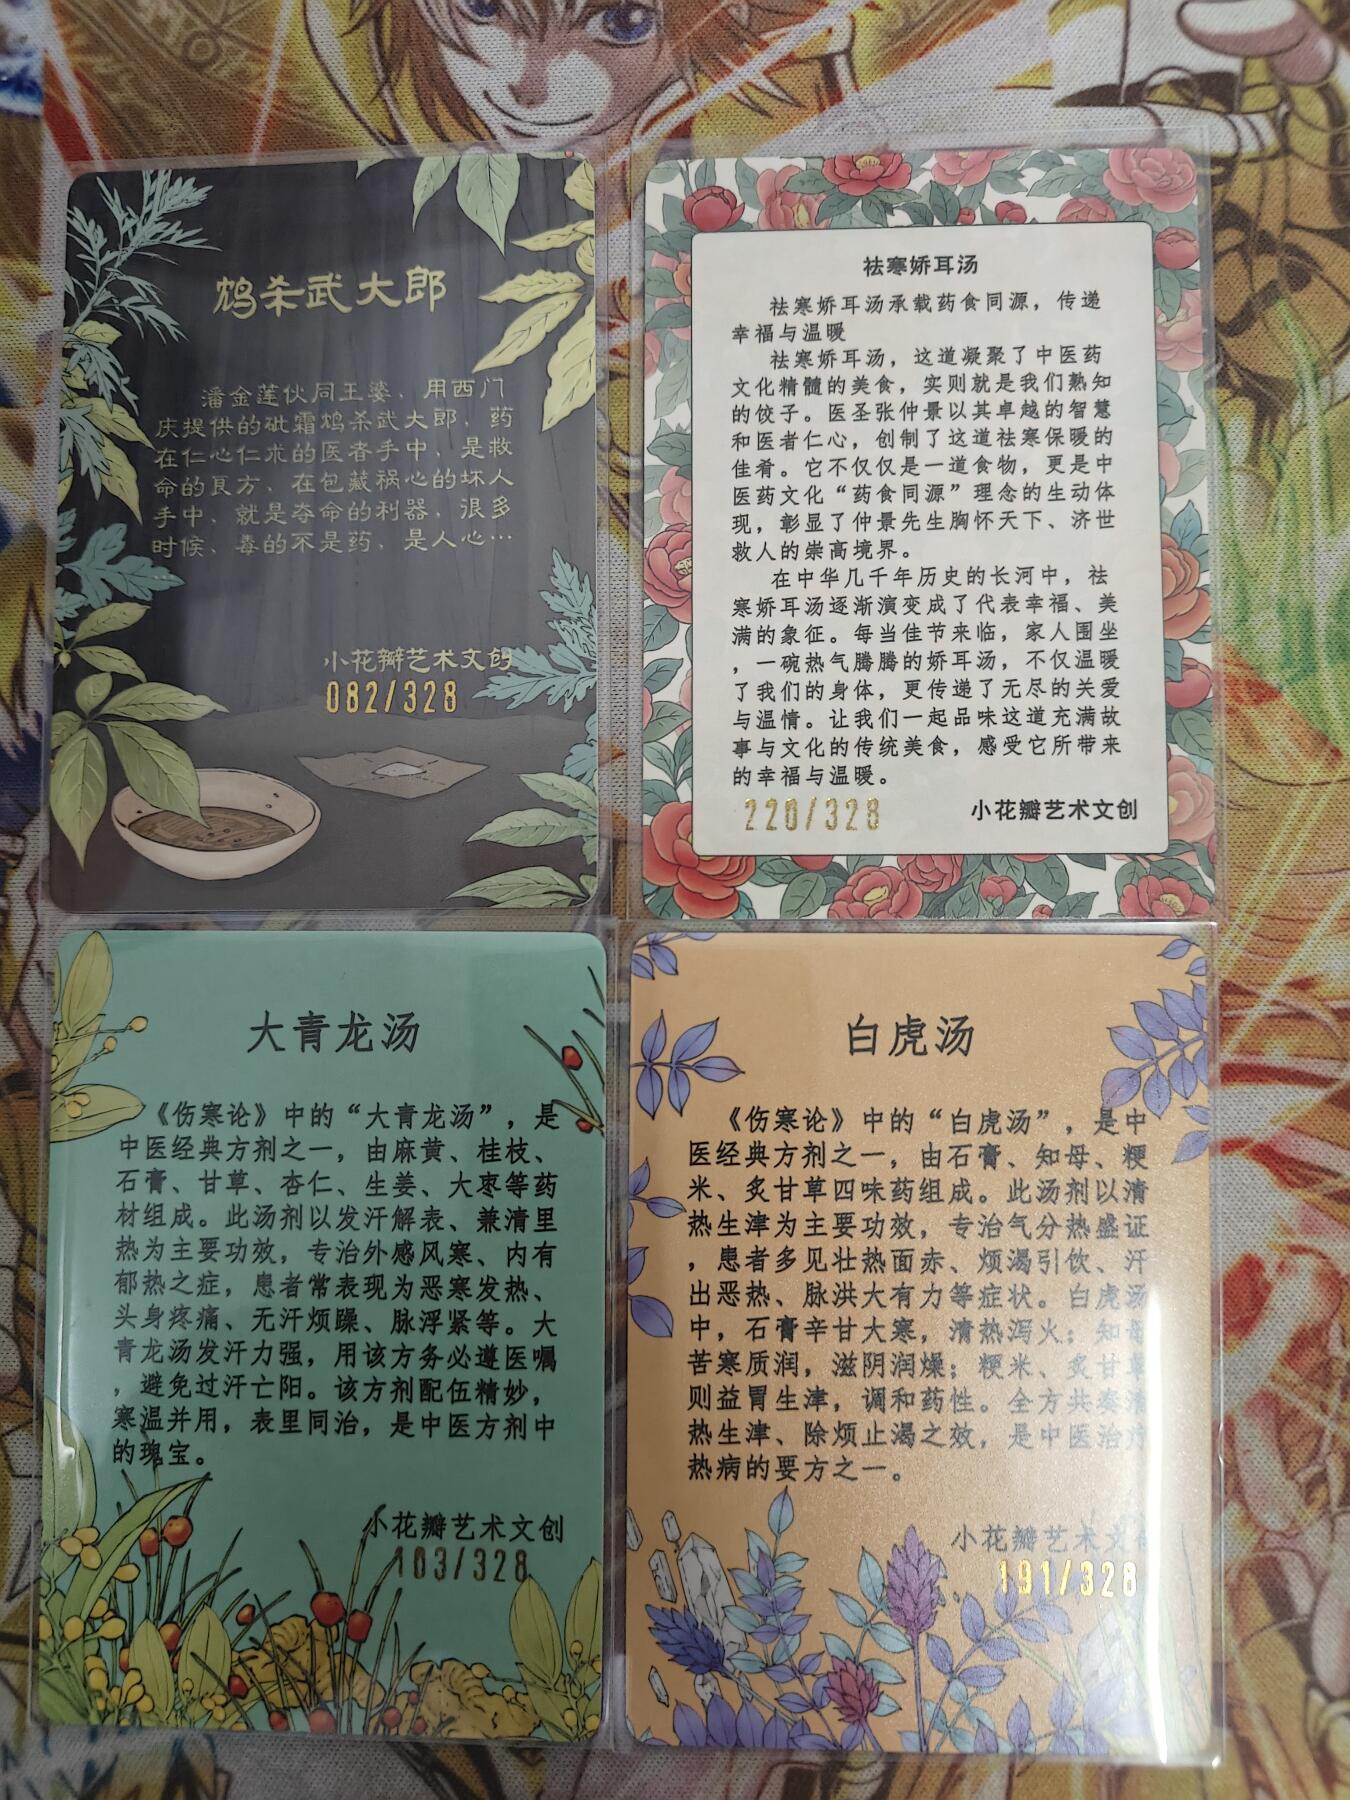 鸩杀武大郎
潘金莲伙同王婆、用西门
庆提供的砒霜鸩杀武大郎、药
在仁心仁术的医者手中、是救
命的良方、在包藏祸心的坏人
手中、就是夺命的利器、很多
时候、毒的不是药、是人心…
小花瓣艺术文创
082/328
祛寒娇耳汤
祛寒娇耳汤承载药食同源，传递
幸福与温暖
祛寒娇耳汤，这道凝聚了中医药
文化精髓的美食，实则就是我们熟知
的饺子。医圣张仲景以其卓越的智慧
和医者仁心，创制了这道祛寒保暖的
佳肴。它不仅仅是一道食物，更是中
医药文化“药食同源”理念的生动体
现，彰显了仲景先生胸怀天下、济世
救人的崇高境界。
在中华几千年历史的长河中，祛
寒娇耳汤逐渐演变成了代表幸福、美
满的象征。每当佳节来临，家人围坐
，一碗热气腾腾的娇耳汤，不仅温暖
了我们的身体，更传递了无尽的关爱
与温情。让我们一起品味这道充满故
事与文化的传统美食，感受它所带来
的幸福与温暖。
220/328
小花瓣艺术文创
大青龙汤
《伤寒论》中的“大青龙汤”，是
中医经典方剂之一，由麻黄、桂枝、
石膏、甘草、杏仁、生姜、大枣等药
材组成。此汤剂以发汗解表、兼清里
热为主要功效，专治外感风寒、内有
郁热之症，患者常表现为恶寒发热、
头身疼痛、无汗烦躁、脉浮紧等。大
青龙汤发汗力强，用该方务必遵医嘱
，避免过汗亡阳。该方剂配伍精妙，
寒温并用，表里同治，是中医方剂中
的瑰宝。
小花瓣艺术文创
103/328
白虎汤
《伤寒论》中的“白虎汤”，是中
医经典方剂之一，由石膏、知母、粳
米、炙甘草四味药组成。此汤剂以清
热生津为主要功效，专治气分热盛证
，患者多见壮热面赤、烦渴引饮、汗
出恶热、脉洪大有力等症状。白虎汤
中，石膏辛甘大寒，清热泻火；知母
苦寒质润，滋阴润燥；粳米、炙甘草
则益胃生津，调和药性。全方共奏清
热生津、除烦止渴之效，是中医治疗
热病的要方之一。
小花瓣艺术文创
191/328